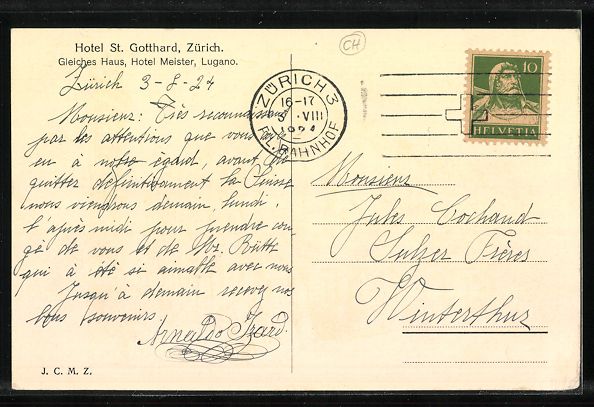 Hotel St. Gotthard, Zürich.
Gleiches Haus, Hotel Meister, Lugano.
Zürich 3-8-24
Monsieur: Très reconnaissans
par les attentions que vous avez
eu à notre égard, avant de
quitter définitivement la Suisse
nous viendrons demain, lundi,
l'après midi pour prendre con-
gé de vous et de Mr. Rütti
qui a été si aimable avec nous
Jusqu'à demain recevez nos
bons souvenirs.
Arnaldo Izard.
J. C. M. Z.
CH
ZÜRICH 3
16-17
3. VIII
1924
FIL. BAHNHOF
10
HELVETIA
Monsieur
Jules Cochand
Sulzer Frères
Winterthur